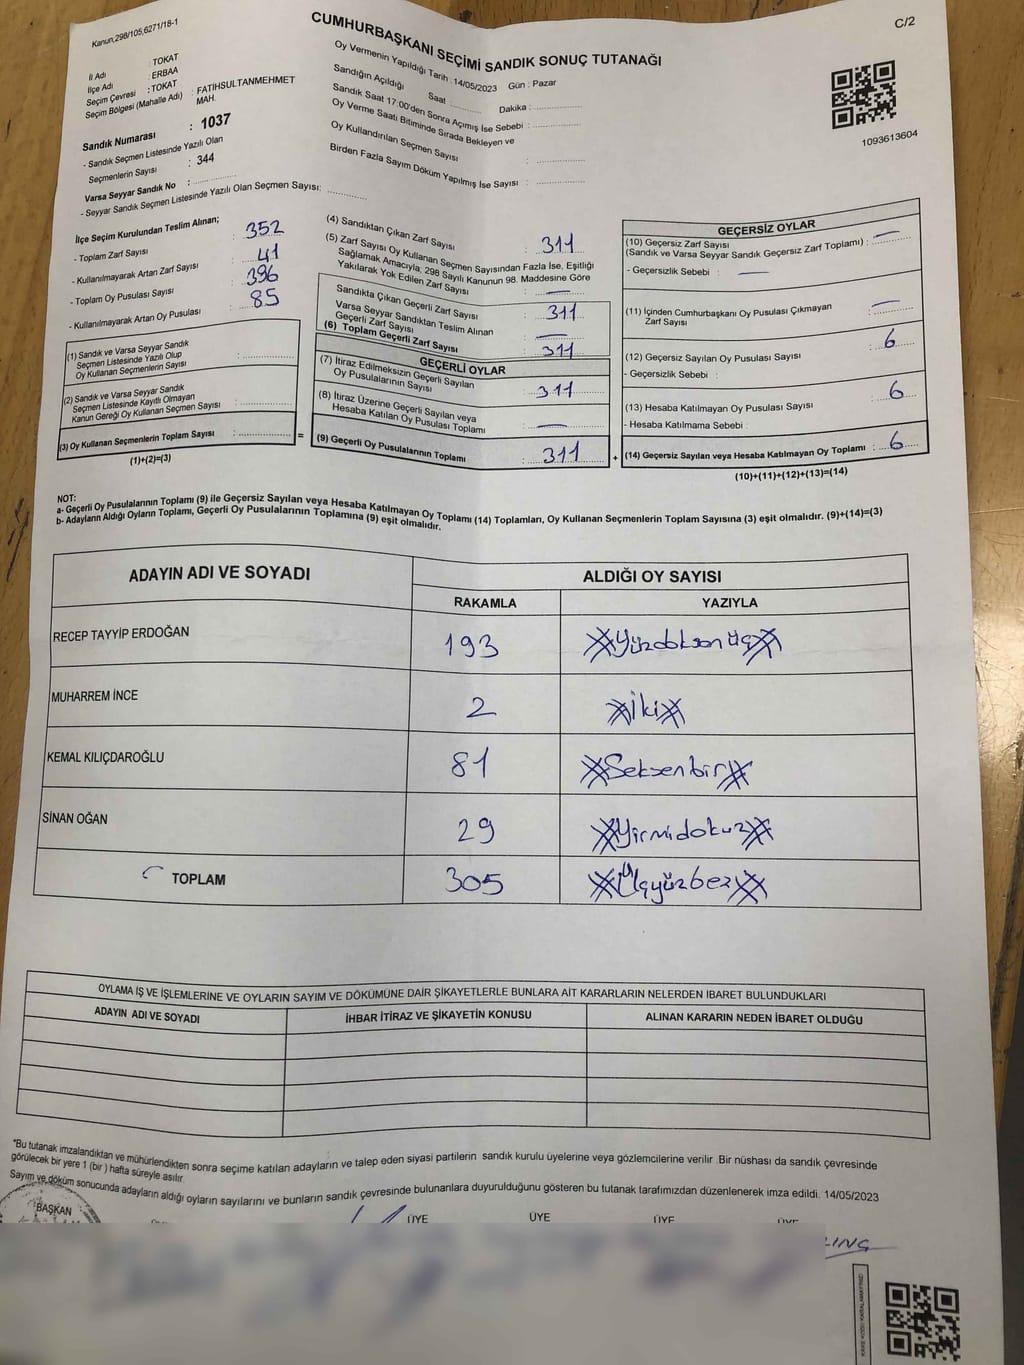 Kanun,298/105,6271/18-1
C/2
CUMHURBAŞKANI SEÇİMİ SANDIK SONUÇ TUTANAĞI
İl Adı : TOKAT
İlçe Adı : ERBAA
Seçim Çevresi : TOKAT
Seçim Bölgesi (Mahalle Adı) : FATİHSULTANMEHMET MAH.
Sandık Numarası : 1037
- Sandık Seçmen Listesinde Yazılı Olan
Seçmenlerin Sayısı : 344
Varsa Seyyar Sandık No :
- Seyyar Sandık Seçmen Listesinde Yazılı Olan Seçmen Sayısı:
Oy Vermenin Yapıldığı Tarih : 14/05/2023 Gün : Pazar
Sandığın Açıldığı Saat Dakika :
Sandık Saat 17:00'den Sonra Açımış İse Sebebi :
Oy Verme Saati Bitiminde Sırada Bekleyen ve
Oy Kullandırılan Seçmen Sayısı :
Birden Fazla Sayım Döküm Yapılmış İse Sayısı :
1093613604
İlçe Seçim Kurulundan Teslim Alınan;
- Toplam Zarf Sayısı : 352
- Kullanılmayarak Artan Zarf Sayısı : 41
- Toplam Oy Pusulası Sayısı : 396
- Kullanılmayarak Artan Oy Pusulası : 85
(1) Sandık ve Varsa Seyyar Sandık
Seçmen Listesinde Yazılı Olup
Oy Kullanan Seçmenlerin Sayısı :
(2) Sandık ve Varsa Seyyar Sandık
Seçmen Listesinde Kayıtlı Olmayan
Kanun Gereği Oy Kullanan Seçmen Sayısı :
(3) Oy Kullanan Seçmenlerin Toplam Sayısı : =
(1)+(2)=(3)
(4) Sandıktan Çıkan Zarf Sayısı : 311
(5) Zarf Sayısı Oy Kullanan Seçmen Sayısından Fazla İse, Eşitliği
Sağlamak Amacıyla; 298 Sayılı Kanunun 98. Maddesine Göre
Yakılarak Yok Edilen Zarf Sayısı : —
Sandıkta Çıkan Geçerli Zarf Sayısı : 311
Varsa Seyyar Sandıktan Teslim Alınan
Geçerli Zarf Sayısı : —
(6) Toplam Geçerli Zarf Sayısı : 311
GEÇERLİ OYLAR
(7) İtiraz Edilmeksizin Geçerli Sayılan
Oy Pusulalarının Sayısı : 311
(8) İtiraz Üzerine Geçerli Sayılan veya
Hesaba Katılan Oy Pusulası Toplamı : —
(9) Geçerli Oy Pusulalarının Toplamı : 311 +
GEÇERSİZ OYLAR
(10) Geçersiz Zarf Sayısı
(Sandık ve Varsa Seyyar Sandık Geçersiz Zarf Toplamı) : —
- Geçersizlik Sebebi : —
(11) İçinden Cumhurbaşkanı Oy Pusulası Çıkmayan
Zarf Sayısı : —
(12) Geçersiz Sayılan Oy Pusulası Sayısı : 6
- Geçersizlik Sebebi :
(13) Hesaba Katılmayan Oy Pusulası Sayısı : 6
- Hesaba Katılmama Sebebi :
(14) Geçersiz Sayılan veya Hesaba Katılmayan Oy Toplamı : 6
(10)+(11)+(12)+(13)=(14)
NOT:
a- Geçerli Oy Pusulalarının Toplamı (9) ile Geçersiz Sayılan veya Hesaba Katılmayan Oy Toplamı (14) Toplamları, Oy Kullanan Seçmenlerin Toplam Sayısına (3) eşit olmalıdır. (9)+(14)=(3)
b- Adayların Aldığı Oyların Toplamı, Geçerli Oy Pusulalarının Toplamına (9) eşit olmalıdır.
ADAYIN ADI VE SOYADI ALDIĞI OY SAYISI
RAKAMLA YAZIYLA
RECEP TAYYİP ERDOĞAN 193 Yüzdoksanüç
MUHARREM İNCE 2 İki
KEMAL KILIÇDAROĞLU 81 Seksenbir
SİNAN OĞAN 29 Yirmidokuz
TOPLAM 305 Üçyüzbeş
OYLAMA İŞ VE İŞLEMLERİNE VE OYLARIN SAYIM VE DÖKÜMÜNE DAİR ŞİKAYETLERLE BUNLARA AİT KARARLARIN NELERDEN İBARET BULUNDUKLARI
ADAYIN ADI VE SOYADI İHBAR İTİRAZ VE ŞİKAYETİN KONUSU ALINAN KARARIN NEDEN İBARET OLDUĞU
*Bu tutanak imzalandıktan ve mühürlendikten sonra seçime katılan adayların ve talep eden siyasi partilerin sandık kurulu üyelerine veya gözlemcilerine verilir .Bir nüshası da sandık çevresinde
görülecek bir yere 1 (bir ) hafta süreyle asılır.
Sayım ve döküm sonucunda adayların aldığı oyların sayılarını ve bunların sandık çevresinde bulunanlara duyurulduğunu gösteren bu tutanak tarafımızdan düzenlenerek imza edildi. 14/05/2023
BAŞKAN ÜYE ÜYE ÜYE ÜYE